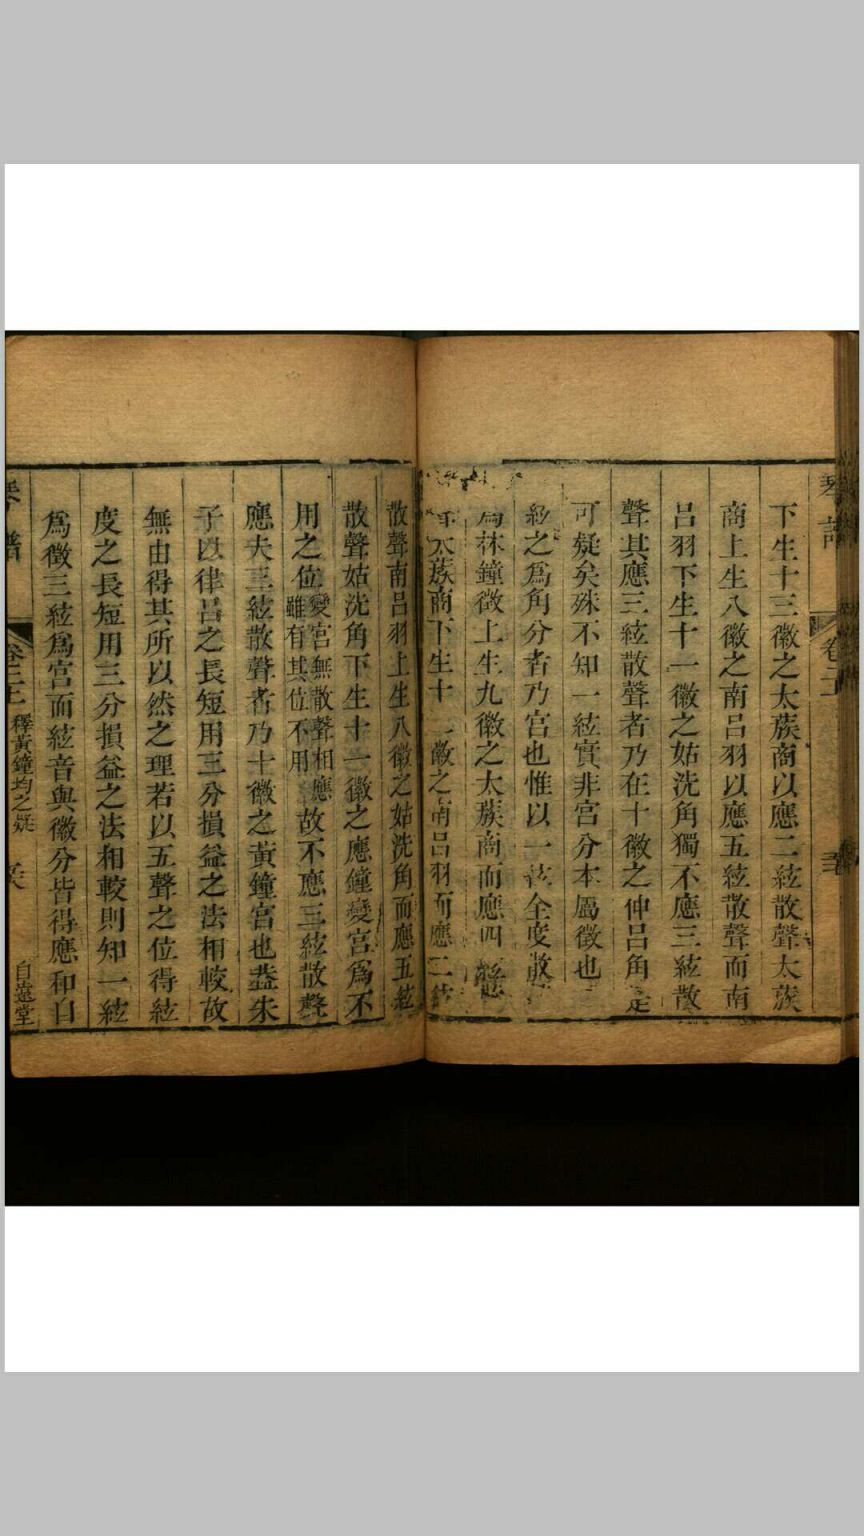 琴譜 卷二
下生十三徽之太蔟商以應二絃散聲太蔟
商上生八徽之南呂羽以應五絃散聲而南
呂羽下生十一徽之姑洗角獨不應三絃散
聲其應三絃散聲者乃在十徽之仲呂角是
可疑矣殊不知一絃實非宮分本屬徵也
絃之為角分者乃宮也惟以一絃全度散
為林鐘徵上生九徽之太蔟商而應四絃
太蔟商下生十 徽之南呂羽而應二絃
散聲南呂羽上生八徽之姑洗角而應五絃
散聲姑洗角下生十一徽之應鐘變宮為不
用之位變宮無散聲相應雖有其位不用故不應三絃散聲
應夫三絃散聲者乃十徽之黃鐘宮也蓋朱
子以律呂之長短用三分損益之法相較故
無由得其所以然之理若以五聲之位得絃
度之長短用三分損益之法相較則知一絃
為徵三絃為宮而絃音與徽分皆得應和自
琴譜 卷二上 釋黃鐘均之疑 自遠堂